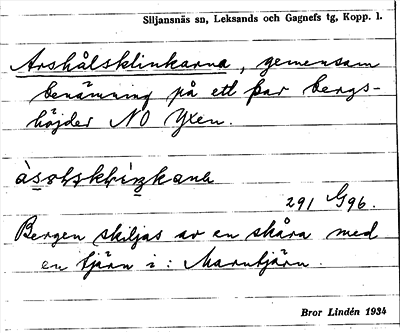 Siljansnäs sn, Leksands och Gagnefs tg, Kopp. l.
Arshålsklinkarna, gemensam
benämning på ett par bergs-
höjder NO Yxen.
291 G96.
Bergen skiljas av en skåra med
en tjärn i: Marntjärn.
Bror Lindén 1934